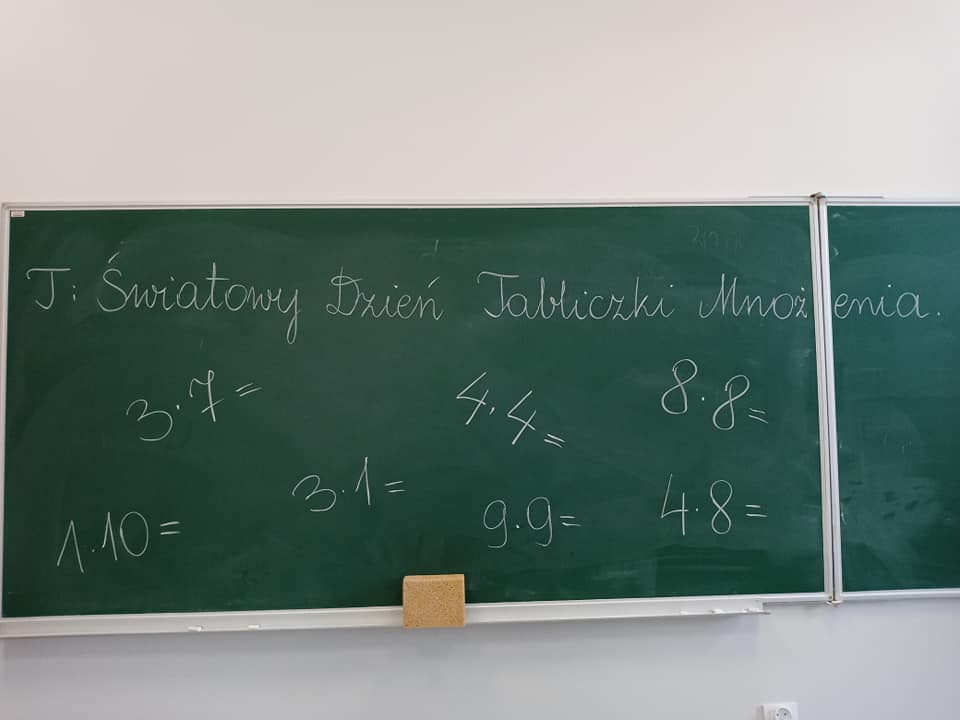 T: Światowy Dzień Tabliczki Mnożenia.
3·7=
4·4=
8·8=
3·1=
1·10=
9·9=
4·8=